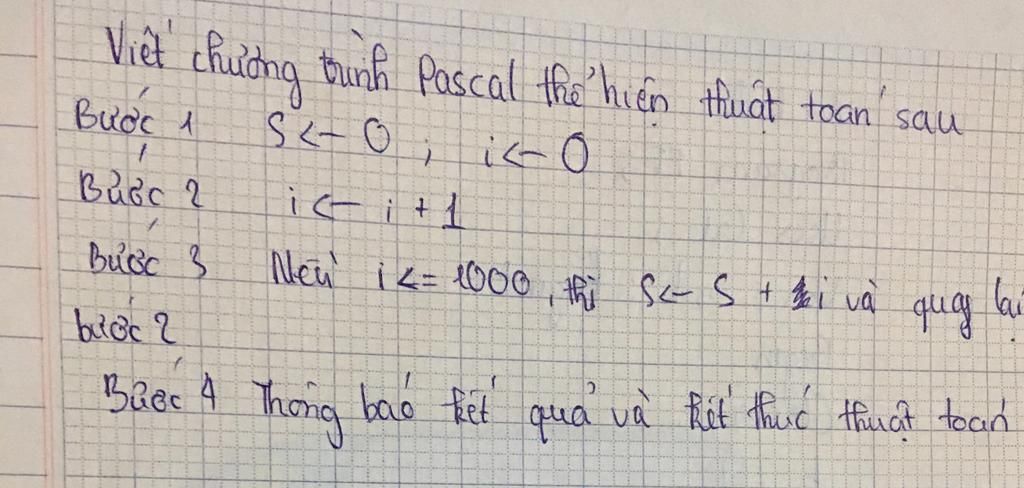 Viết chương trình Pascal thể hiện thuật toán sau
Bước 1 S <- 0 ; i <- 0
Bước 2 i <- i + 1
Bước 3 Nếu i <= 1000, thì S <- S + i và quay lại
bước 2
Bước 4 Thông báo kết quả và kết thúc thuật toán